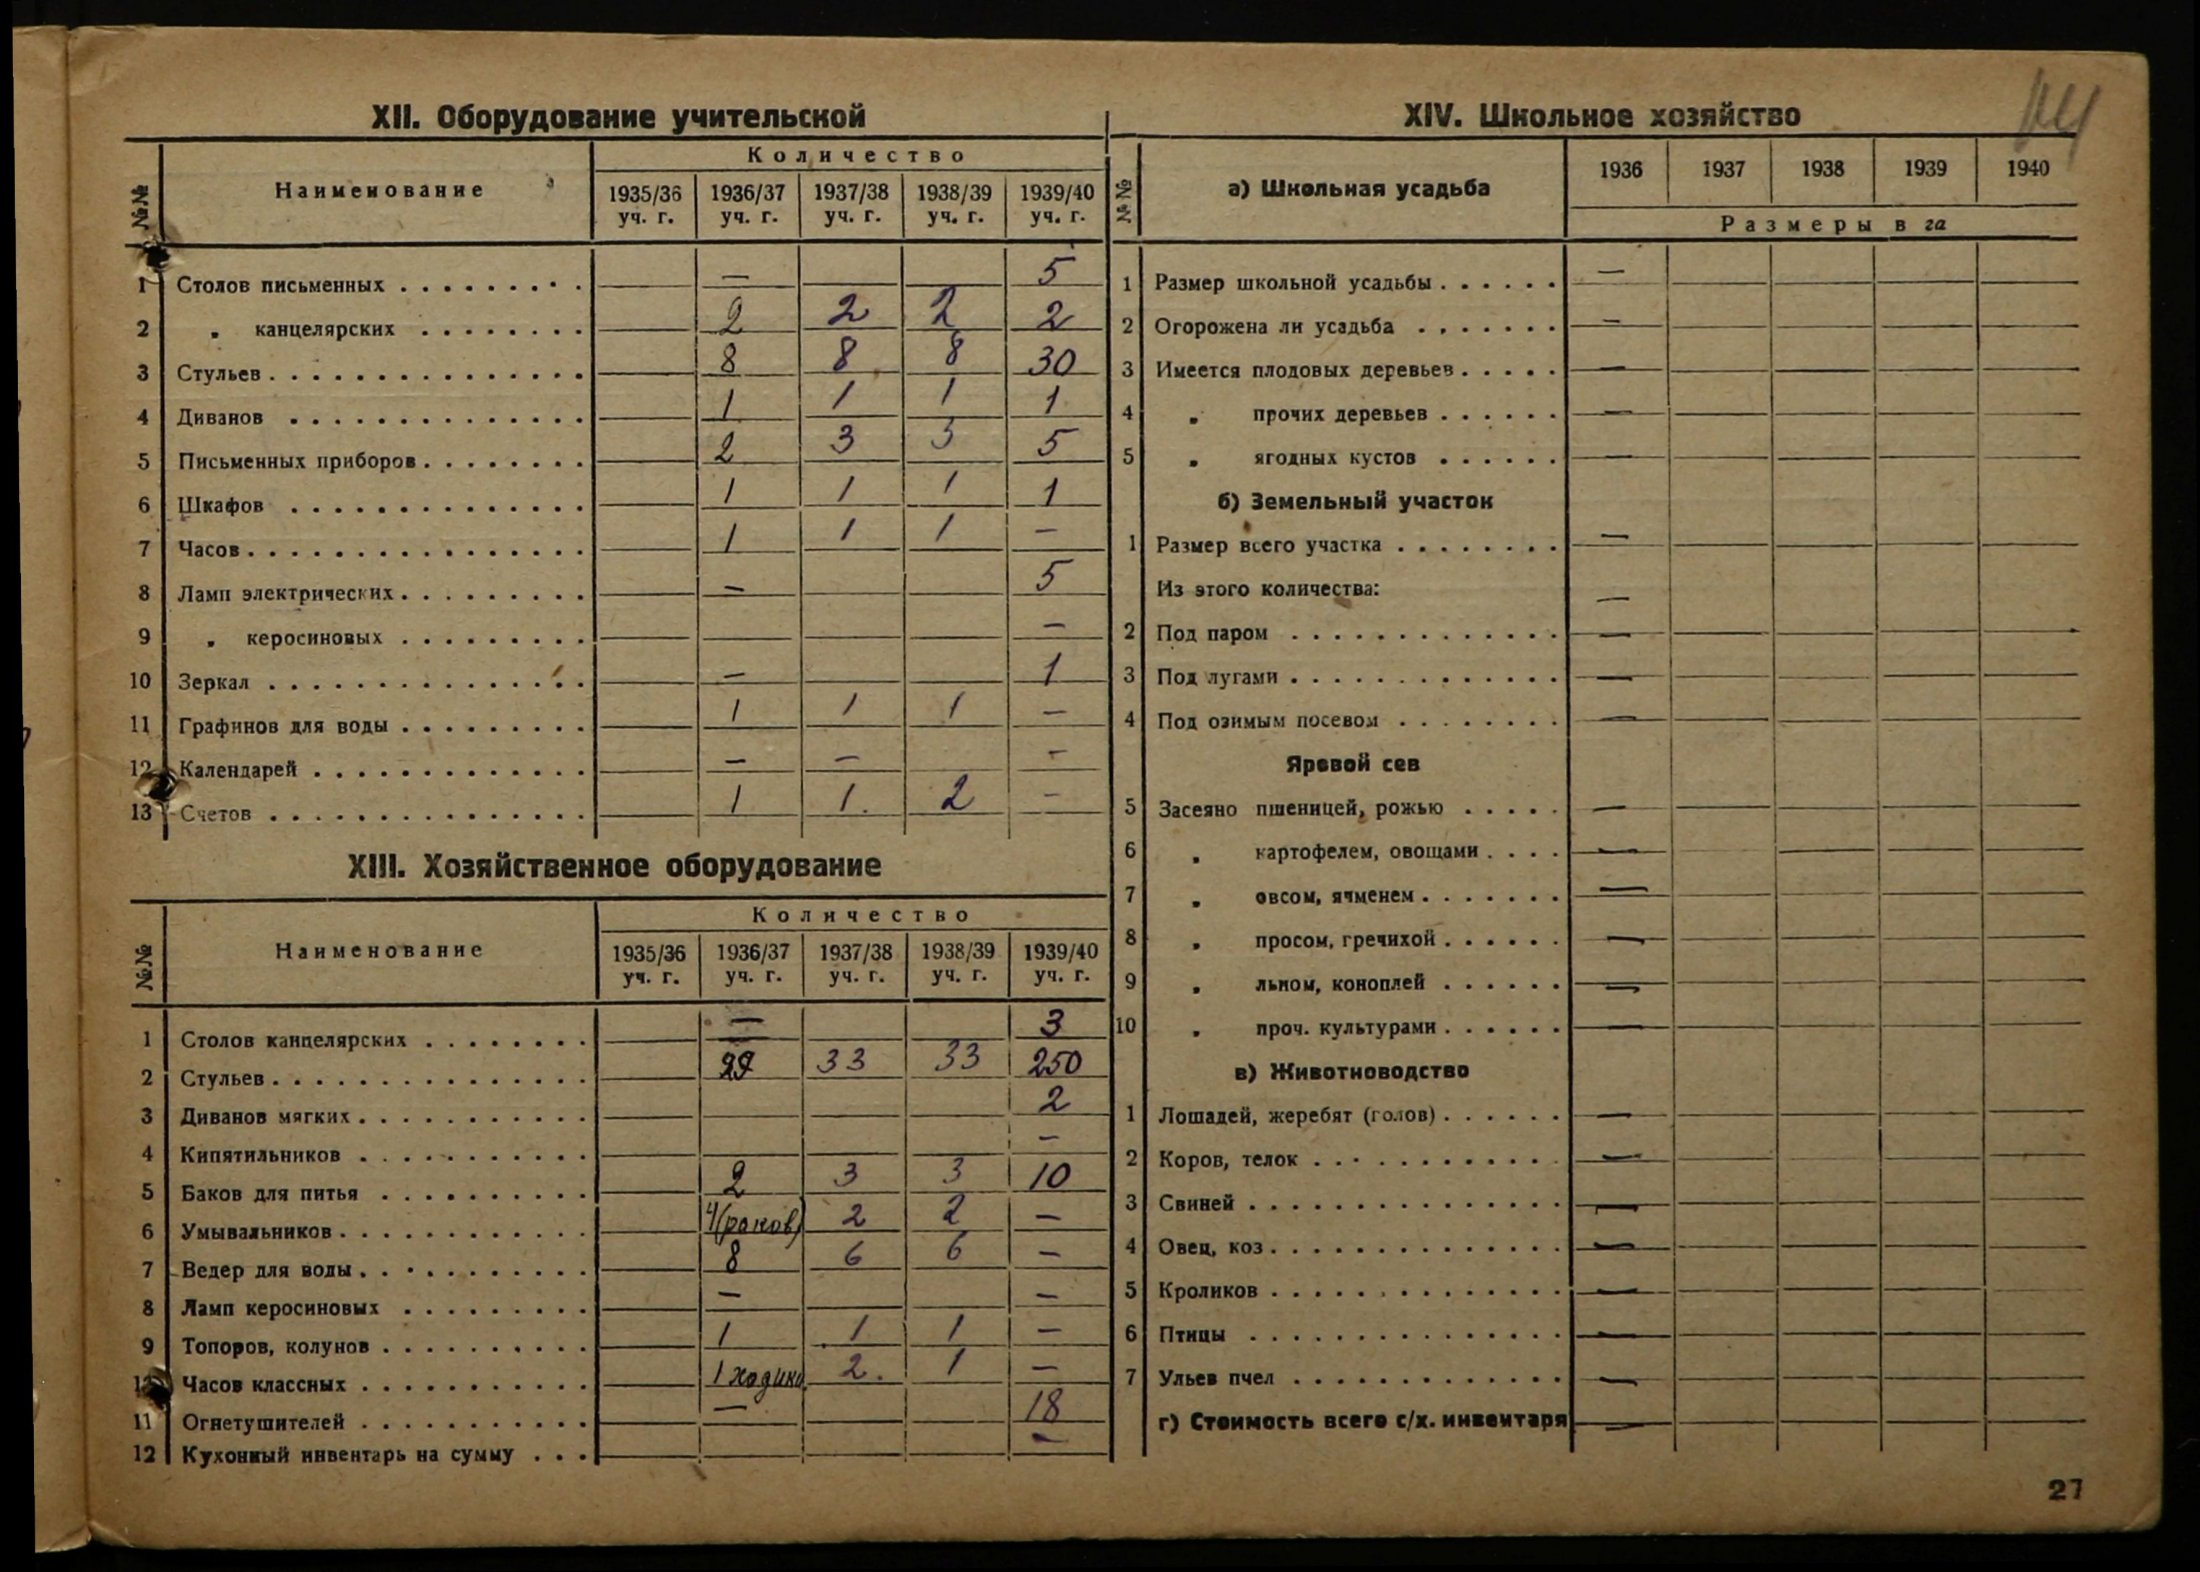 XII. Оборудование учительской
№№ Наименование Количество
1935/36 уч. г. 1936/37 уч. г. 1937/38 уч. г. 1938/39 уч. г. 1939/40 уч. г.
1 Столов письменных . . . . . . . . . — 5
2 „ канцелярских . . . . . . . . 2 2 2 2
3 Стульев . . . . . . . . . . . . . . . 8 8 8 30
4 Диванов . . . . . . . . . . . . . . 1 1 1 1
5 Письменных приборов . . . . . . . . 2 3 3 5
6 Шкафов . . . . . . . . . . . . . . 1 1 1 1
7 Часов . . . . . . . . . . . . . . . . 1 1 1 —
8 Ламп электрических . . . . . . . . . — 5
9 „ керосиновых . . . . . . . . . —
10 Зеркал . . . . . . . . . . . . . . . — 1
11 Графинов для воды . . . . . . . . . 1 1 1 —
12 Календарей . . . . . . . . . . . . . — — —
13 Счетов . . . . . . . . . . . . . . . 1 1. 2 —
XIII. Хозяйственное оборудование
№№ Наименование Количество
1935/36 уч. г. 1936/37 уч. г. 1937/38 уч. г. 1938/39 уч. г. 1939/40 уч. г.
1 Столов канцелярских . . . . . . . . — 3
2 Стульев . . . . . . . . . . . . . . . 33 33 250
3 Диванов мягких . . . . . . . . . . . 2
4 Кипятильников . . . . . . . . . . . —
5 Баков для питья . . . . . . . . . . 2 3 3 10
6 Умывальников . . . . . . . . . . . . 4 (раков) 2 2 —
7 Ведер для воды . . . . . . . . . . . 8 6 6 —
8 Ламп керосиновых . . . . . . . . . — —
9 Топоров, колунов . . . . . . . . . . 1 1 1 —
Часов классных . . . . . . . . . . . 1 ходики 2. 1 —
11 Огнетушителей . . . . . . . . . . . — 18
12 Кухонный инвентарь на сумму . . . —
XIV. Школьное хозяйство
№№ а) Школьная усадьба 1936 1937 1938 1939 1940
Размеры в га
1 Размер школьной усадьбы . . . . . . —
2 Огорожена ли усадьба . . . . . . . —
3 Имеется плодовых деревьев . . . . . —
4 „ прочих деревьев . . . . . . —
5 „ ягодных кустов . . . . . . —
б) Земельный участок
1 Размер всего участка . . . . . . . . —
Из этого количества: —
2 Под паром . . . . . . . . . . . . . —
3 Под лугами . . . . . . . . . . . . . —
4 Под озимым посевом . . . . . . . . —
Яровой сев
5 Засеяно пшеницей, рожью . . . . . —
6 „ картофелем, овощами . . . . —
7 „ овсом, ячменем . . . . . . . —
8 „ просом, гречихой . . . . . . —
9 „ льном, коноплей . . . . . . —
10 „ проч. культурами . . . . . . —
в) Животноводство
1 Лошадей, жеребят (голов) . . . . . . —
2 Коров, телок . . . . . . . . . . . . —
3 Свиней . . . . . . . . . . . . . . . —
4 Овец, коз . . . . . . . . . . . . . . —
5 Кроликов . . . . . . . . . . . . . . —
6 Птицы . . . . . . . . . . . . . . . —
7 Ульев пчел . . . . . . . . . . . . . —
г) Стоимость всего с/х. инвентаря —
27